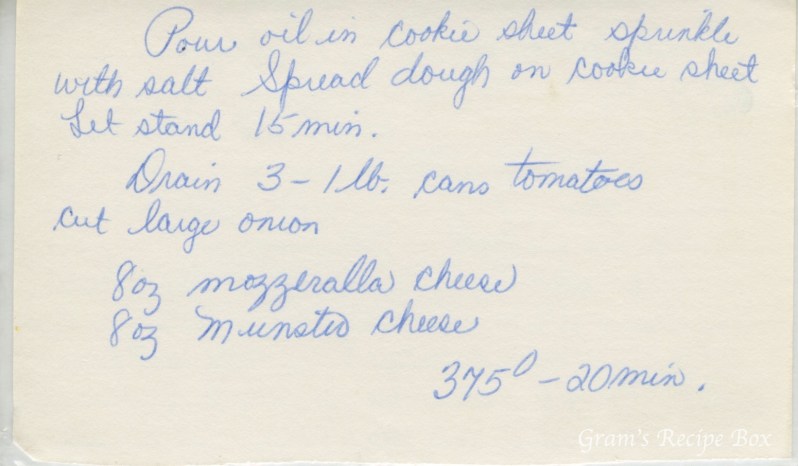 Pour oil in cookie sheet sprinkle
with salt Spread dough on cookie sheet
Let stand 15 min.
Drain 3 - 1 lb. cans tomatoes
cut large onion
8oz mozzeralla cheese
8oz Munsted cheese
375° - 20 min.
Gram's Recipe Box